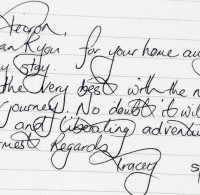 an Ryan for your home a
y stay.
the very best with the n
journey. No doubt it wil
and (liberating) adventu
mest Regards
Tracey
s